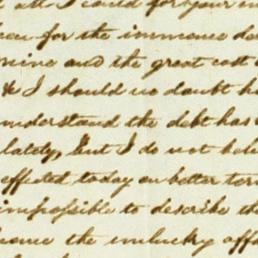 all I could for your in
for the immense de
mine and the great cost
& I should no doubt ha
understand the debt has
lately, But I do not bele
effected today on better ter
impossible to describe the
the unlucky affa